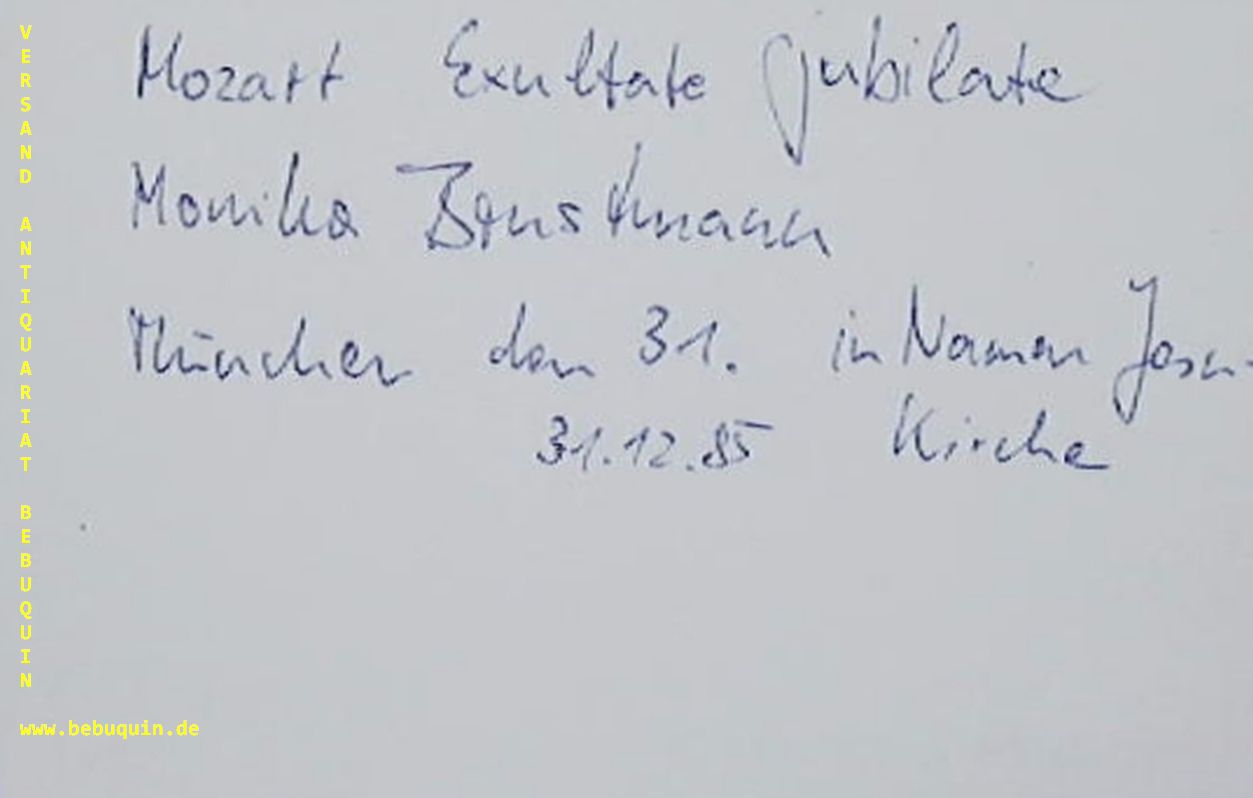 Mozart Exultate jubilate
Monika Brustmann
München den 31. in Namen Jesu-
31.12.85 Kirche
VERSAND ANTIQUARIAT BEBUQUIN
www.bebuquin.de